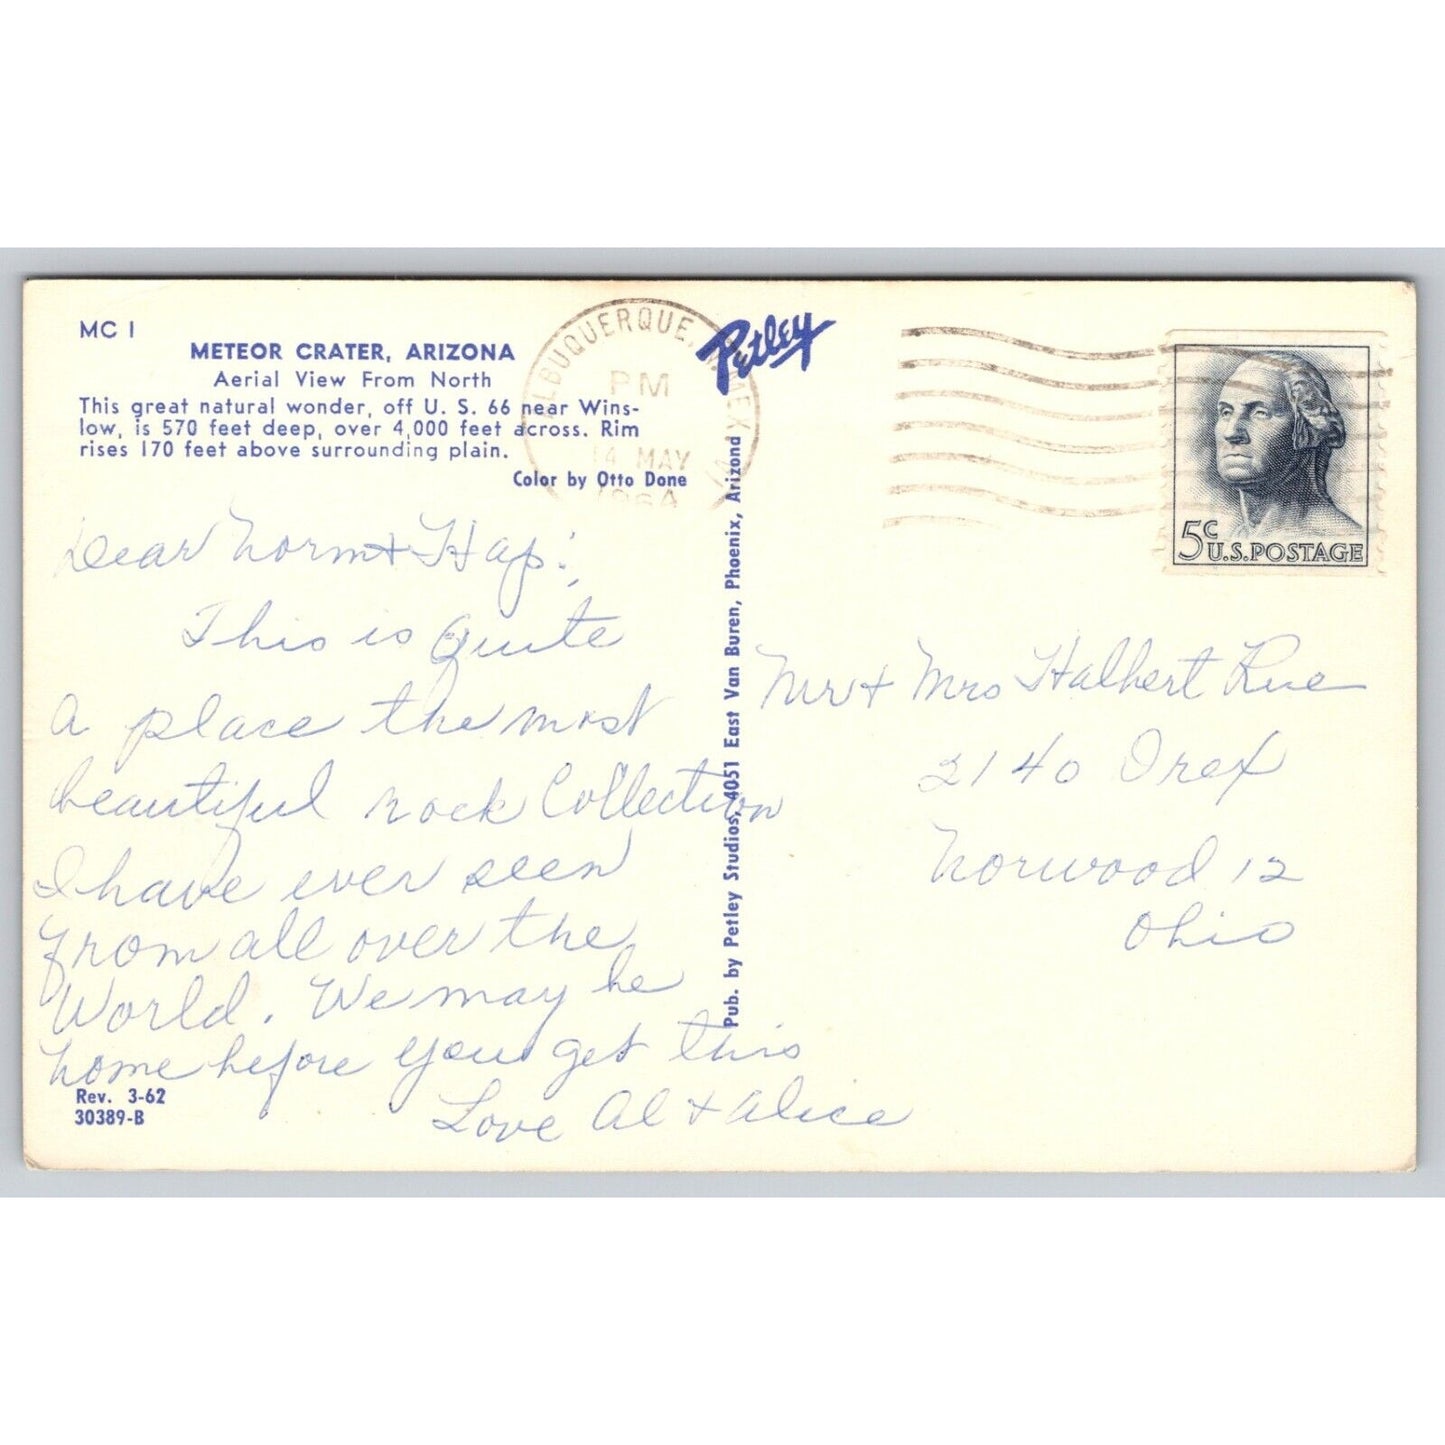 MC 1
METEOR CRATER, ARIZONA
Aerial View From North
This great natural wonder, off U. S. 66 near Wins-
low, is 570 feet deep, over 4,000 feet across. Rim
rises 170 feet above surrounding plain.
Color by Otto Done
ALBUQUERQUE, N. MEX
PM
14 MAY
1964
Petley
5c
U.S. POSTAGE
Dear Norm + Hap:
This is Quite
a place the most
beautiful rock Collection
I have ever seen
from all over the
World. We may be
home before you get this
Love Al + Alice
Rev. 3-62
30389-B
Pub. by Petley Studios, 4051 East Van Buren, Phoenix, Arizona
Mr + Mrs Halbert Rue
2140 Drex
Norwood 12
Ohio